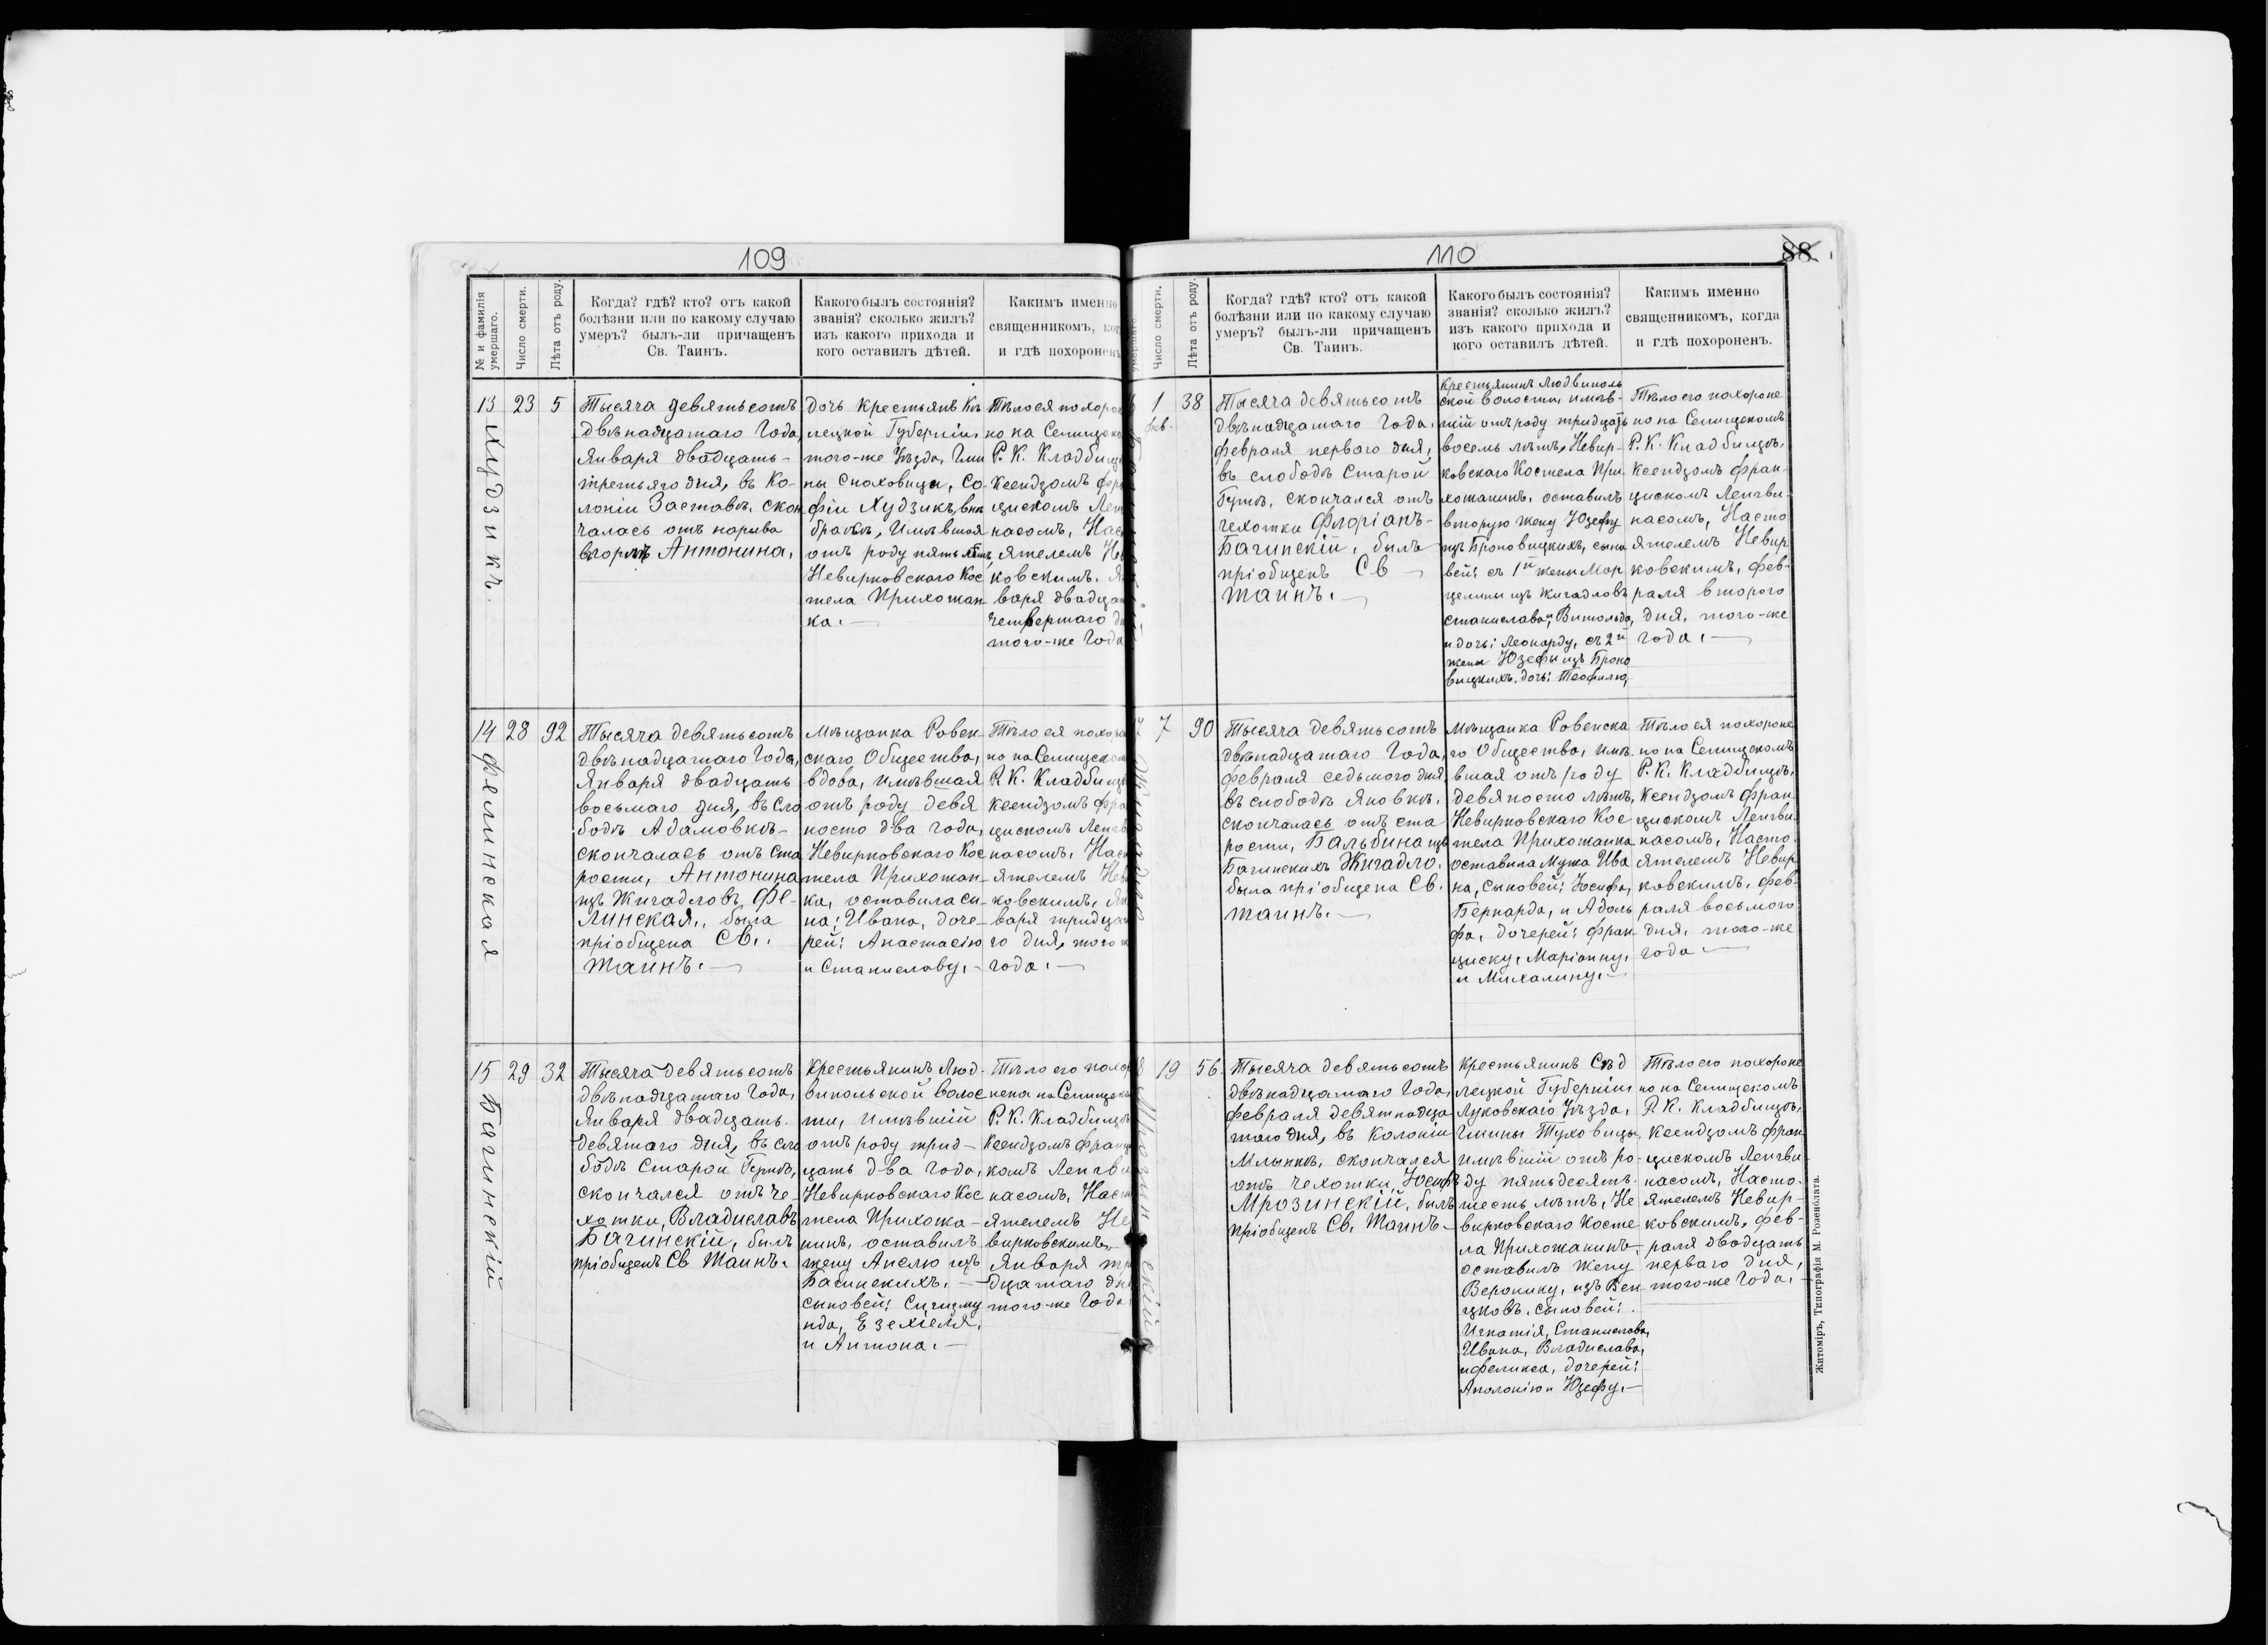 109
№ и фамилія умершаго.
Число смерти.
Лѣта отъ роду.
Когда? гдѣ? кто? отъ какой
болѣзни или по какому случаю
умеръ? былъ-ли причащенъ
Св. Таинъ.
Какого былъ состоянія?
званія? сколько жилъ?
изъ какого прихода и
кого оставилъ дѣтей.
Какимъ именно
священникомъ, ког
и гдѣ похороненъ
13
Худзикъ.
23
5
Тысяча девятьсотъ
двѣнадцатаго Года,
Января двадцать-
третьяго дня, въ Ко-
лоніи Заставѣ, скон
чалась отъ нарыва
вгорлѣ Антонина.
Дочь Крестьянъ Кѣ
лецкой Губерніи
того-же Уѣзда, Гми
ны Снаховица, Со-
фіи Худзикъ, внѣ
брачн., Имѣвшая
отъ роду пять лѣтъ,
Невирковскаго Кос
тела Прихожан-
ка.
Тѣло ея похоро
но на Селищско
Р. К. Кладбищѣ
Ксендзомъ фра
цискомъ Лен
насомъ, Нас
ятелемъ Не
ковскимъ. Я
варя двадца
четвертаго д
того-же Года
14
Фелинская
28
92
Тысяча девятьсотъ
двѣнадцатаго Года,
Января двадцать
восьмаго дня, въ Сло
бодѣ Адамовкѣ-
скончалась отъ Ста
рости, Антонина
изъ Жигадловъ Фе-
линская, была
пріобщена Св.
Таинъ.
Мѣщанка Ровен
скаго Общества,
вдова, имѣвшая
отъ роду девя
носто два года,
Невирковскаго Кос
тела Прихожан-
ка, оставила сы-
на: Ивана, доче-
рей: Анастасію
и Станиславу.
Тѣло ея похоро
но на Селищском
Р. К. Кладбищѣ
Ксендзомъ фра
цискомъ Ленгв
насомъ, Наст
ятелемъ Нев
ковскимъ, Ян
варя тридца
го дня, того ж
года.
15
Багинскій
29
32
Тысяча девятьсотъ
двѣнадцатаго Года,
Января двадцать
девятаго дня, въ сло
бодѣ Старой Гутѣ,
скончался отъ че-
хотки, Владиславъ
Багинскій, былъ
пріобщенъ Св Таинъ.
Крестьянинъ Люд-
випольской волос
ти, имѣвшій
отъ роду трид-
цать два года,
Невирковскаго Кос
тела Прихожа-
нинъ, оставилъ
жену Анелю изъ
Багинскихъ.
сыновей: Сигизму
нда, Езехіеля,
и Антона.
Тѣло его похо
нено на Селищско
Р. К. Кладбищѣ
Ксендзомъ Франц
комъ Ленгви
насомъ, Наст
ятелемъ Не
вирковскимъ,
Января тр
дцатаго дн
того-же Года
110
88
умершаго.
Число смерти.
Лѣта отъ роду.
Когда? гдѣ? кто? отъ какой
болѣзни или по какому случаю
умеръ? былъ-ли причащенъ
Св. Таинъ.
Какого былъ состоянія?
званія? сколько жилъ?
изъ какого прихода и
кого оставилъ дѣтей.
Какимъ именно
священникомъ, когда
и гдѣ похороненъ.
1
фев.
38
Тысяча девятьсотъ
двѣнадцатаго Года,
февраля перваго дня,
въ слободѣ Старой
Гутѣ, скончался отъ
чехотки Флоріанъ-
Багинскій, былъ
пріобщенъ Св
Таинъ.
Крестьянинъ Людвиполь
ской волости, имѣв-
шій отъ роду тридцать
восемь лѣтъ, Невир-
ковскаго Костела При-
хожанинъ, оставилъ
вторую жену Юзефу
изъ Броновицкихъ, сыно
вей: съ 1й жены Мар
целины изъ Жигадловъ
Станислава, Витольда,
и дочь: Леонарду, съ 2й
жены Юзефы изъ Броно
вицкихъ, дочь: Теофилю,
Тѣло его похороне
но на Селищскомъ
Р. К. Кладбищѣ,
Ксендзомъ фран-
цискомъ Ленгви-
насомъ, Насто
ятелемъ Невир
ковскимъ, фев-
раля второго
дня, того-же
года.
7
90
Тысяча девятьсотъ
двѣнадцатаго Года,
февраля седьмого дня,
въ слободѣ Яновкѣ,
скончалась отъ ста
рости, Бальбина изъ
Багинскихъ Жигадло,
была пріобщена Св.
Таинъ.
Мѣщанка Ровенска
го Общества, имѣ-
вшая отъ роду
девяносто лѣтъ,
Невирковскаго Кос
тела Прихожанка
оставила Мужа Ива
на, сыновей: Іосифа,
Бернарда, и Адоль
фа, дочерей: фран-
циску, Маріанну,
и Михалину.
Тѣло ея похороне
но на Селищскомъ
Р. К. Кладбищѣ,
Ксендзомъ фран
цискомъ Ленгви-
насомъ, Насто-
ятелемъ Невир
ковскимъ, фев-
раля восьмого
дня, того-же
года
Мрозинскій
19
56
Тысяча девятьсотъ
двѣнадцатаго Года,
февраля девятнадца
таго дня, въ Колоніи
Млынкѣ, скончался
отъ чехотки, Юсифъ
Мрозинскій, былъ
пріобщенъ Св. Таинъ.
Крестьянинъ Сѣд
лецкой Губерніи
Луковскаго Уѣзда,
Гмины Туховичъ,
имѣвшій отъ ро-
ду пятьдесятъ-
шесть лѣтъ, Не
вирковскаго Косте
ла Прихожанинъ,
оставилъ жену
Веронику, изъ Вен
цковъ, сыновей:
Игнатія, Станислава,
Ивана, Владислава,
и феликса, дочерей:
Аполонію и Юзефу.
Тѣло его похороне
но на Селищскомъ
Р. К. Кладбищѣ,
Ксендзомъ фран
цискомъ Ленгви-
насомъ, Насто-
ятелемъ Невир-
ковскимъ, фев-
раля двадцать
перваго дня,
того-же Года.
Житоміръ, Типографія М. Розенблата.